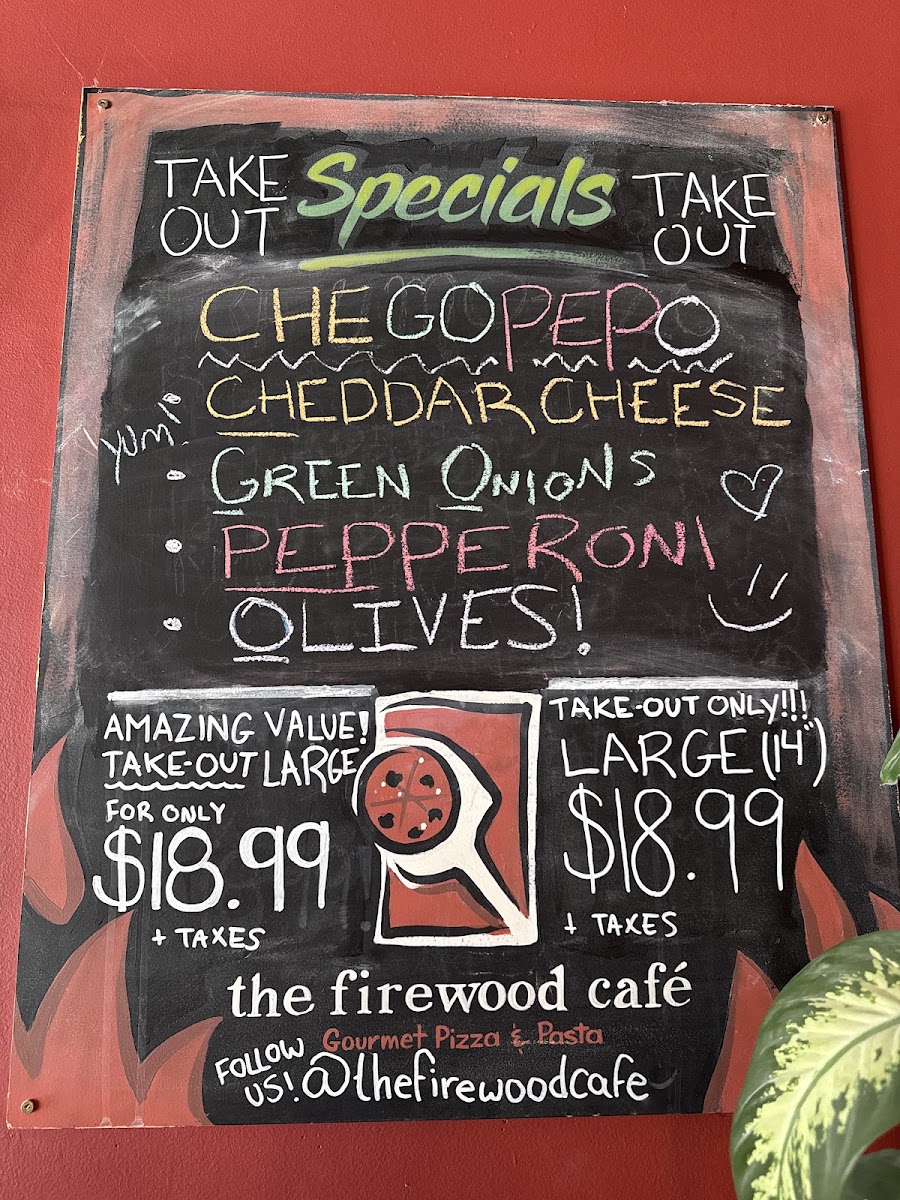 TAKE OUT Specials TAKE OUT
CHEGOPEPO
• CHEDDAR CHEESE
yum!
• GREEN ONIONS
• PEPPERONI
• OLIVES!
AMAZING VALUE!
TAKE-OUT LARGE
FOR ONLY
$18.99
+ TAXES
TAKE-OUT ONLY!!!
LARGE (14")
$18.99
+ TAXES
the firewood café
Gourmet Pizza & Pasta
FOLLOW US! @thefirewoodcafe